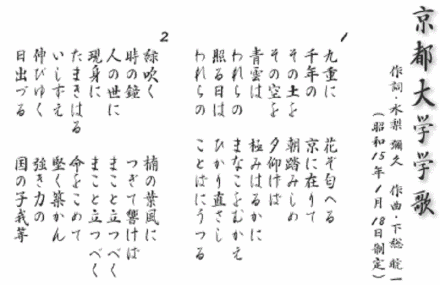 京都大学学歌
作詞・水梨彌久 作曲・下総皖一
(昭和15年1月18日制定)
1
九重に 花ぞ匂へる
千年の 京に在りて
その土を 朝踏みしめ
その空を 夕仰げば
青雲は 極みはるかに
われらの まなこをむかえ
照る日は ひかり直さし
われらの ことばにうつる
2
緑吹く 楠の葉風に
時の鐘 つぎて響けば
人の世に まこと立つべく
現身に まこと立つべく
たまきはる 命をこめて
いしすえ 堅く築かん
伸びゆく 強き力の
日出づる 国の子我等